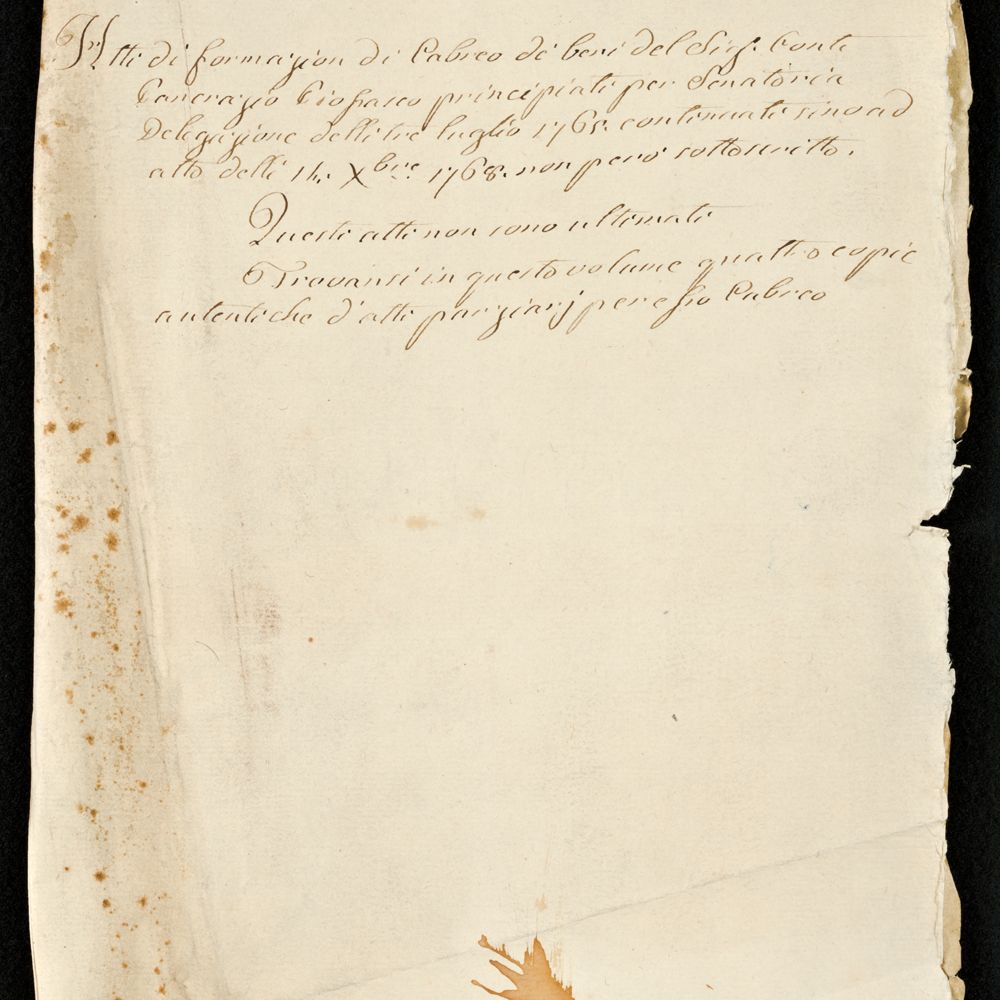 Atti di formazion di Cabreo de beni del Sigr. Conte
Pancrazio Piossasco principiati per Senatoria
Delegazione delli tre luglio 1765. continuati sino ad
atto delli 14. Xbre. 1768. non però sottoscritto.
Questi atti non sono ultimati
Trovansi in questo volume quattro copie
autentiche d'atti parziarj per esso Cabreo